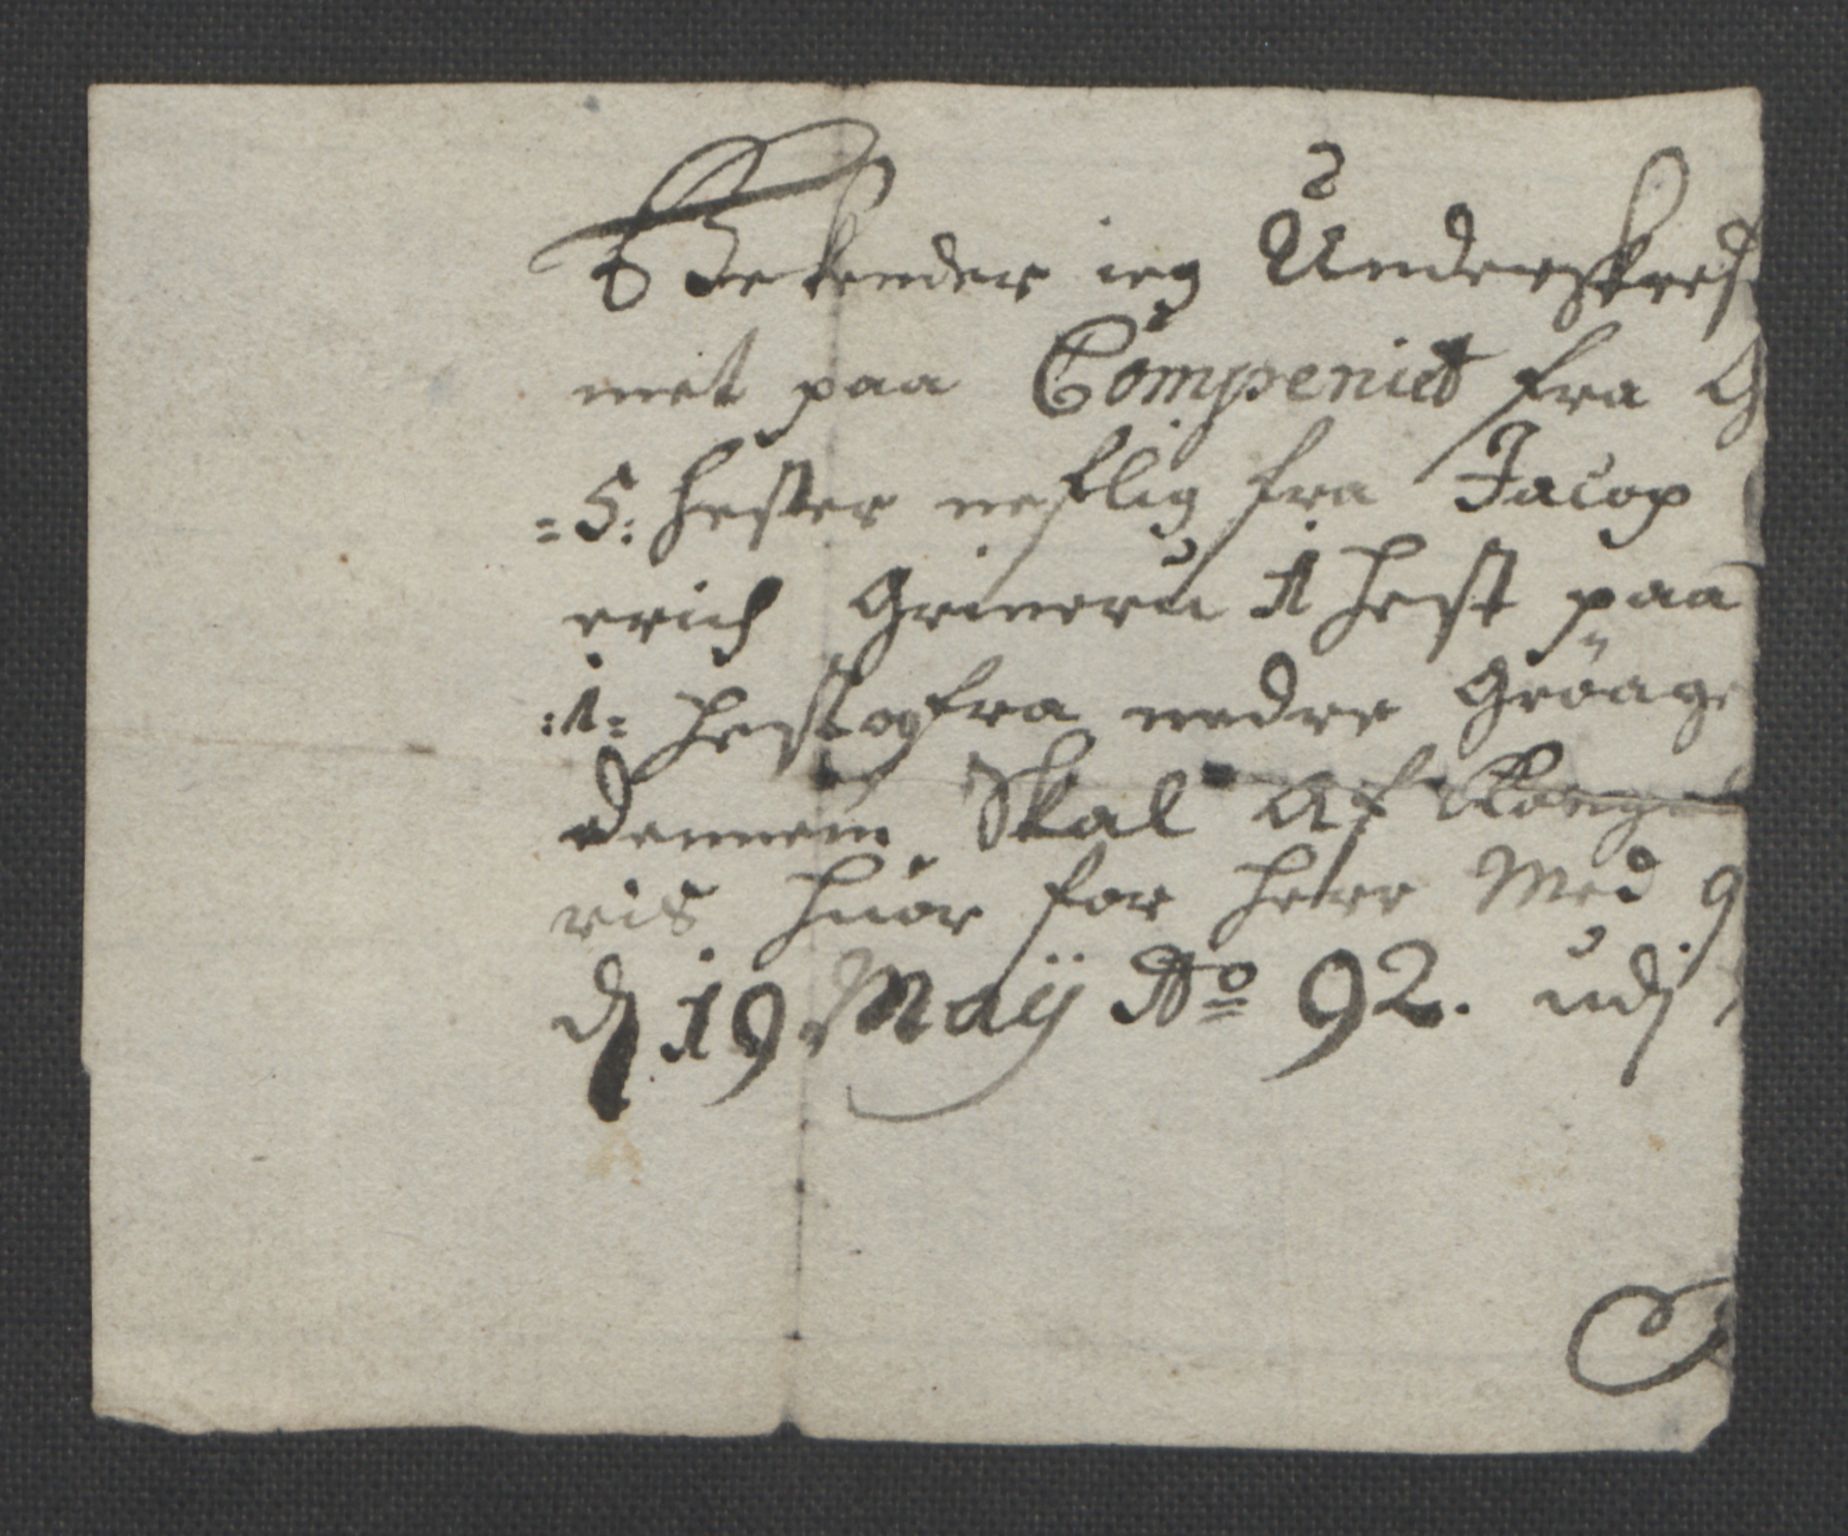 Bekender ieg Underskref
met paa Compeniet fra G
=5: hester neflig fra Jacop
erich Grimeru 1 hest paa
:1= hest og fra nedre Gröag
dennem Skal Af Kong
ris huor for herr Med g
dj 19 Maij Ao 92. udj